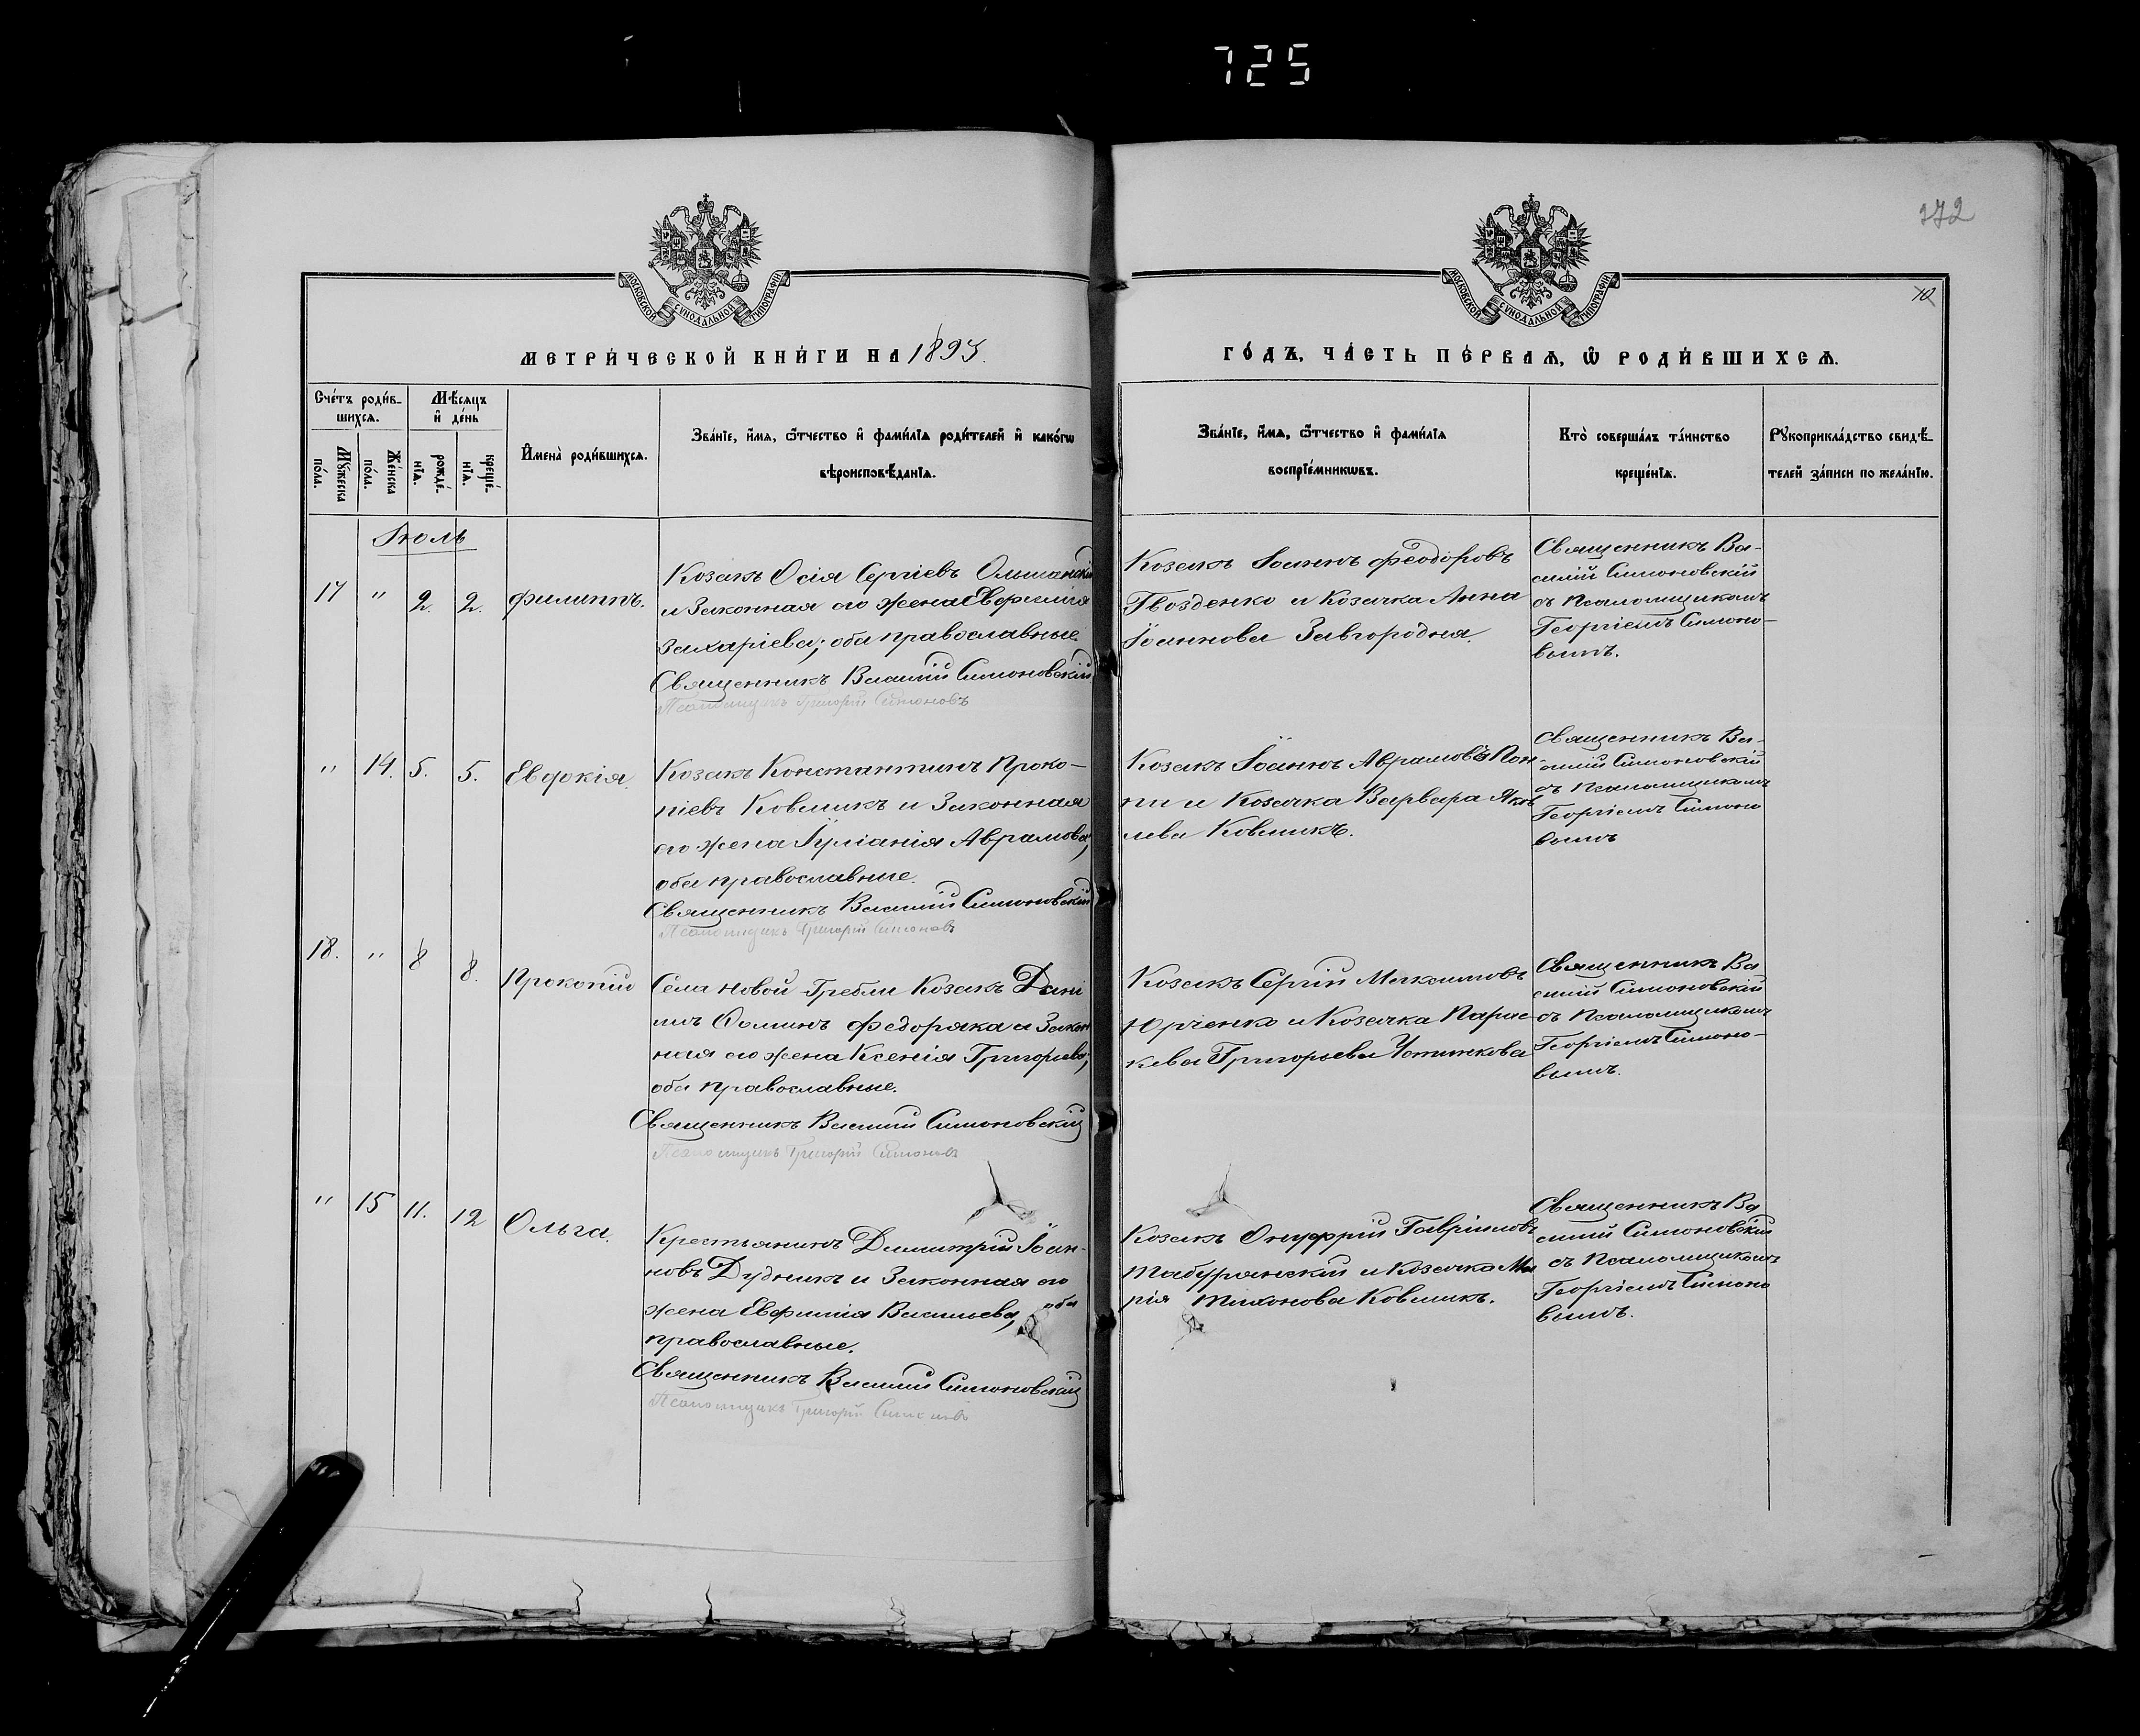 725
172
10
МОСКОВСКОЙ СѴНОДАЛЬНОЙ ТИПОГРАФІИ
МОСКОВСКОЙ СѴНОДАЛЬНОЙ ТИПОГРАФІИ
МЕТРИ́ЧЕСКОЙ КНИ́ГИ НА 1893.
ГО́ДЪ, ЧА́СТЬ ПЕ́РВАѦ, Ѡ҆ РОДИ́ВШИХСѦ.
Сче́тъ роди́в-
шихсѧ.
Мѣ́сѧцъ
и҆ де́нь
Мꙋ́жеска
по́ла.
Же́нска
по́ла.
рожде́-
нїѧ.
креще́-
нїѧ.
И҆мена̀ роди́вшихсѧ.
Зва́нїе, и҆́мѧ, ѻ҆́тчество и҆ фами́лїѧ роди́телей и҆ како́гѡ
вѣроисповѣ́данїѧ.
Зва́нїе, и҆́мѧ, ѻ҆́тчество и҆ фами́лїѧ
воспрїе́мникѡвъ.
Кто̀ соверша́лъ та́инство
креще́нїѧ.
Рꙋкоприкла́дство свидѣ́-
телей за́писи по жела́нїю.
Іюль
17 " 2. 2. Филиппъ.
Козакъ Осія Сергіевъ Ольшанскій
и Законная его жена Евфимія
Захаріева; оба православные.
Священникъ Василій Симоновскій
Псаломщикъ Григорій Симоновъ
Козакъ Іоаннъ Феодоровъ
Гвозденко и Козачка Анна
Іоаннова Завгородня.
Священникъ Ва-
силій Симоновскій
съ Псаломщикомъ
Георгіемъ Симоно-
вымъ.
" 14. 5. 5. Евдокія.
Козакъ Константинъ Проко-
піевъ Ковликъ и Законная
его жена Іуліанія Аврамова,
оба православные.
Священникъ Василій Симоновскій
Псаломщикъ Григорій Симоновъ
Козакъ Іоаннъ Аврамовъ
и Козачка Варвара Яков
лева Ковликъ.
Священникъ Ва-
силій Симоновскій
съ Псаломщикомъ
Георгіемъ Симоно
вымъ
18. " 8 8. Прокопій
Села Новой Гребли Козакъ Дані
илъ Ѳоминъ Федоряка и Закон
ная его жена Ксенія Григорьева,
оба православные.
Священникъ Василій Симоновскій
Псаломщикъ Григорій Симоновъ
Козакъ Сергій Максимовъ
Юрченко и Козачка Парас-
кева Григорьева
Священникъ Ва
силій Симоновскій
съ Псаломщикомъ
Георгіемъ Симоно-
вымъ.
" 15 11. 12 Ольга.
Крестьянинъ Димитрій Іоан-
новъ Дудникъ и Законная его
жена Евфимія Васильева, оба
православные.
Священникъ Василій Симоновскій
Псаломщикъ Григорій Симоновъ
Козакъ Онуфрій Гавріиловъ
Табурянскій и Козачка Ма
рія Тихонова Ковликъ.
Священникъ Ва
силій Симоновскій
съ Псаломщикомъ
Георгіемъ Симоно
вымъ.